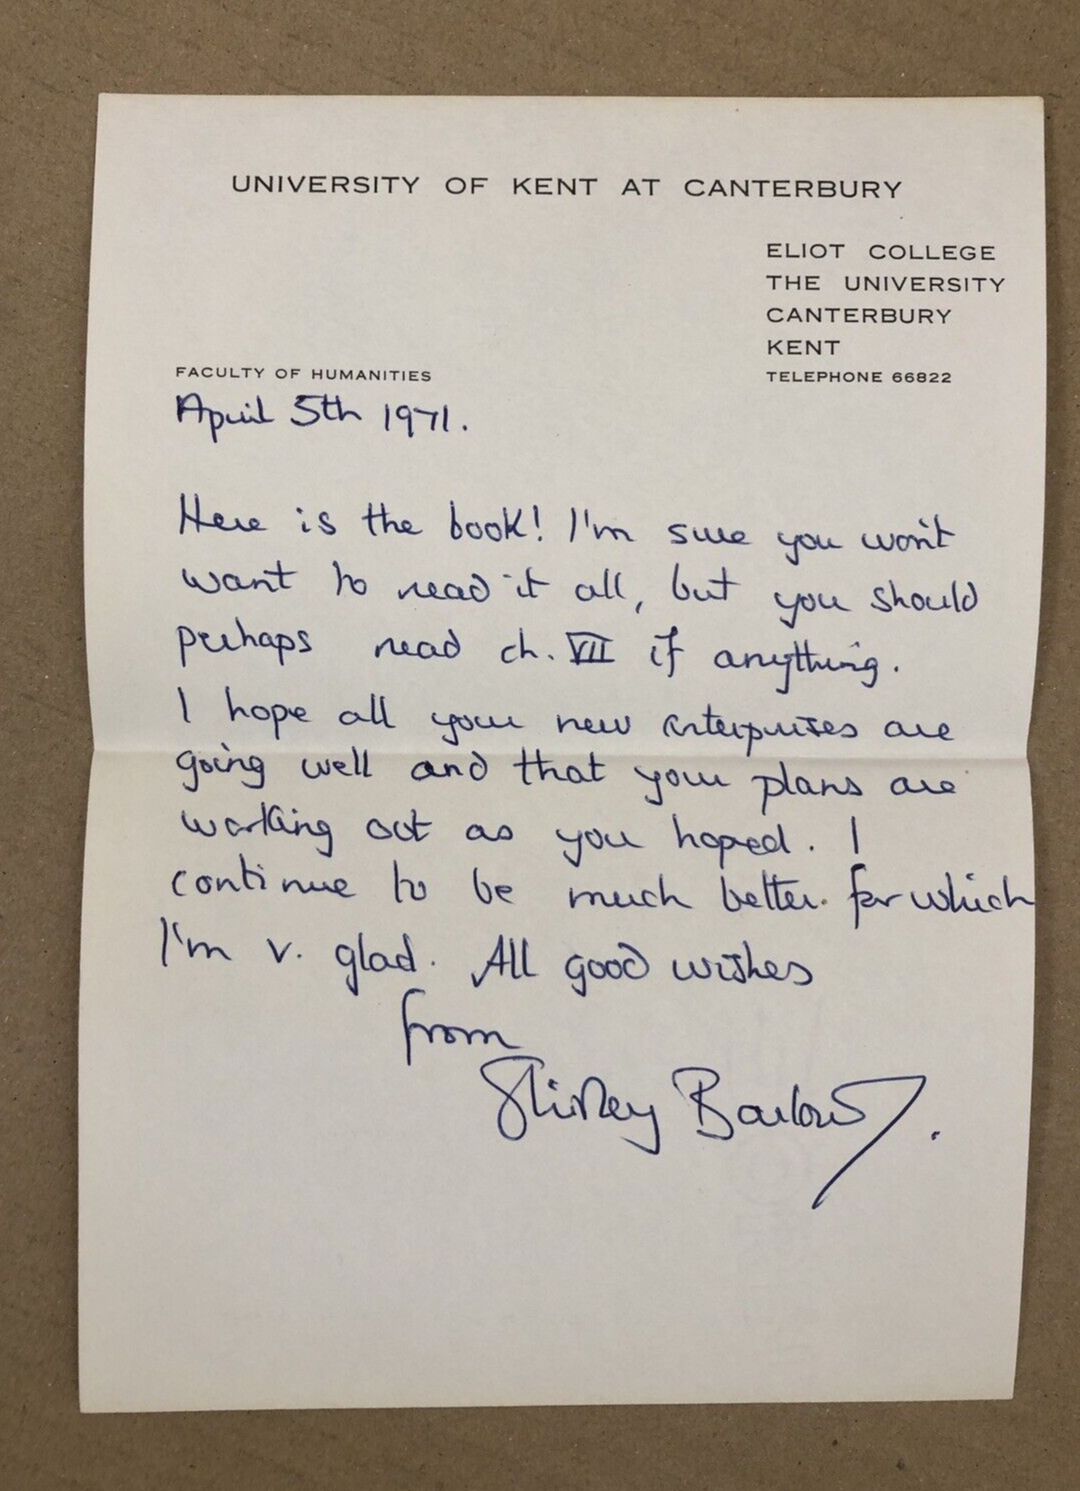 UNIVERSITY OF KENT AT CANTERBURY
ELIOT COLLEGE
THE UNIVERSITY
CANTERBURY
KENT
TELEPHONE 66822
FACULTY OF HUMANITIES
April 5th 1971.
Here is the book! I'm sure you won't
want to read it all, but you should
perhaps read ch. VII if anything.
I hope all your new enterprises are
going well and that your plans are
working out as you hoped. I
continue to be much better for which
I'm v. glad. All good wishes
from
Shirley Barlow.